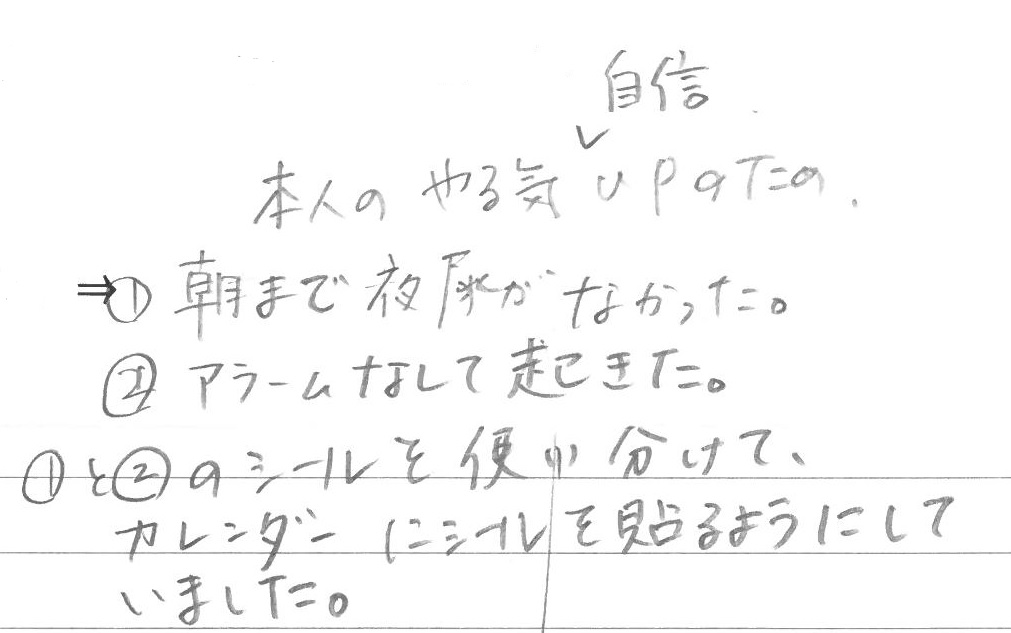 自信
本人の やる気 ∨ UPのための.
⇒① 朝まで夜尿がなかった。
② アラームなしで起きた。
①と②のシールを使い分けて、
カレンダーにシールを貼るようにして
いました。